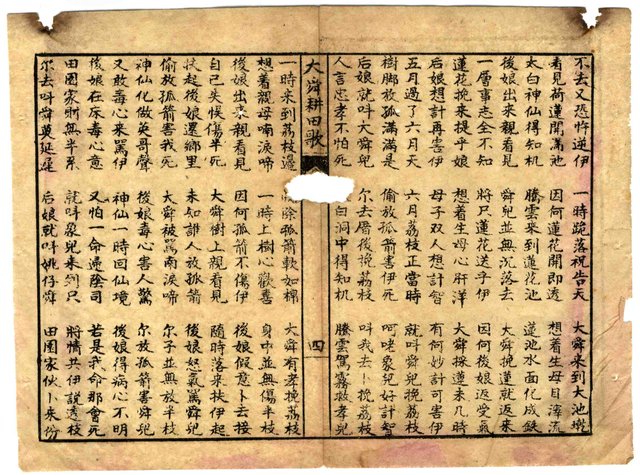 不去又恐忤逆伊 一時跪落祝告天 大舜來到大池墘
看見荷蓮開滿池 因何蓮花開即透 想着生母目滓流
太白神仙得知机 騰雲來到蓮花池 蓮池水面化成鉄
後娘出來親看見 舜兒並無沉落去 大舜挽蓮就返來
一層事志全不知 將只蓮花送乎伊 因何後娘返受氣
蓮花挽來提乎娘 想着生母心肝洋 大舜採蓮未几時
后娘想計再害伊 母子双人想計智 有何妙計可害伊
五月過了六月天 六月荔枝正當時 就叫舜兒挽荔枝
樹脚放孤滿滿是 偷放孤箭害伊死 呵呣象兒好計智
后娘就叫大舜兒 尔去厝後挽荔枝 叫我去卜挽荔枝
人言忠孝不怕死 白洞中得知机 騰雲駕霧救孝兒
大舜耕田歌 四
一時來到荔枝邊 除孤箭軟如棉 大舜有孝挽荔枝
想着親母喃淚啼 一時上樹心歡喜 身中並無傷半枝
後娘出來親看見 因何孤箭不傷伊 後娘假意卜去接
自己失候傷半死 大舜樹上親看見 隨時落來扶伊起
扶起後娘還鄉里 未知誰人放孤箭 後娘怒氣罵舜兒
偷放孤箭害我死 大舜被罵喃淚啼 尔子並無放半枝
神仙化做英哥聲 後娘毒心害人驚 尔放孤箭害舜兒
又敢毒心來罵伊 神仙一時回仙境 後娘得病心不明
後娘在床毒心意 又怕一命過陰司 若是我命那會死
田園家財無半系 就叫象兒來到只 將情共伊說透枝
尔去叫舜莫延遲 后娘就叫姚仔舜 田園家伙卜來份